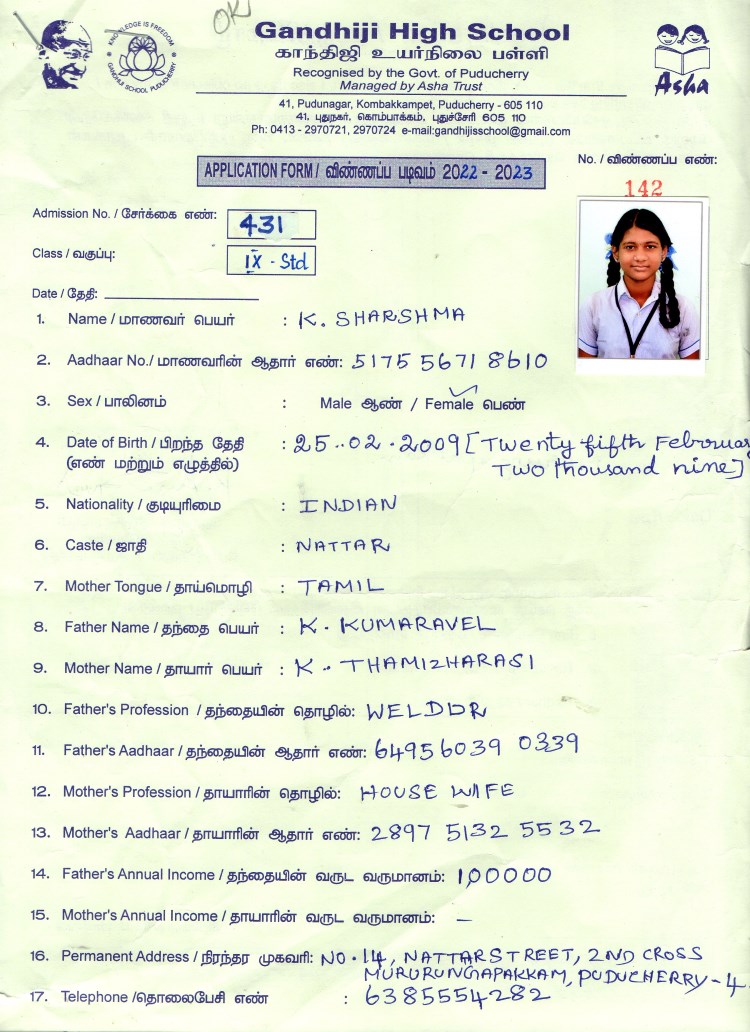 OK
Gandhiji High School
காந்திஜி உயர்நிலை பள்ளி
Recognised by the Govt. of Puducherry
Managed by Asha Trust
KNOWLEDGE IS FREEDOM
GANDHIJI SCHOOL PUDUCHERRY
Asha
41, Pudunagar, Kombakkampet, Puducherry - 605 110
41, புதுநகர், கொம்பாக்கம், புதுச்சேரி 605 110
Ph: 0413 - 2970721, 2970724 e-mail:gandhijisschool@gmail.com
APPLICATION FORM / விண்ணப்ப படிவம் 2022 - 2023
No. / விண்ணப்ப எண்:
142
Admission No. / சேர்க்கை எண்: 431
Class / வகுப்பு: IX - Std
Date / தேதி:
1. Name / மாணவர் பெயர் : K. SHARSHMA
2. Aadhaar No./ மாணவரின் ஆதார் எண்: 5175 5671 8610
3. Sex / பாலினம் : Male ஆண் / Female பெண்
4. Date of Birth / பிறந்த தேதி : 25..02.2009 [Twenty fifth February
(எண் மற்றும் எழுத்தில்) Two thousand nine]
5. Nationality / குடியுரிமை : INDIAN
6. Caste / ஜாதி : NATTAR
7. Mother Tongue / தாய்மொழி : TAMIL
8. Father Name / தந்தை பெயர் : K. KUMARAVEL
9. Mother Name / தாயார் பெயர் : K. THAMIZHARASI
10. Father's Profession / தந்தையின் தொழில்: WELDDR
11. Father's Aadhaar / தந்தையின் ஆதார் எண்: 64956039 0339
12. Mother's Profession / தாயாரின் தொழில்: HOUSE WIFE
13. Mother's Aadhaar / தாயாரின் ஆதார் எண்: 2897 5132 5532
14. Father's Annual Income / தந்தையின் வருட வருமானம்: 1,00000
15. Mother's Annual Income / தாயாரின் வருட வருமானம்: —
16. Permanent Address / நிரந்தர முகவரி: NO. 14, NATTAR STREET, 2ND CROSS
MURURUNGAPAKKAM, PUDUCHERRY - 4.
17. Telephone /தொலைபேசி எண் : 6385554282